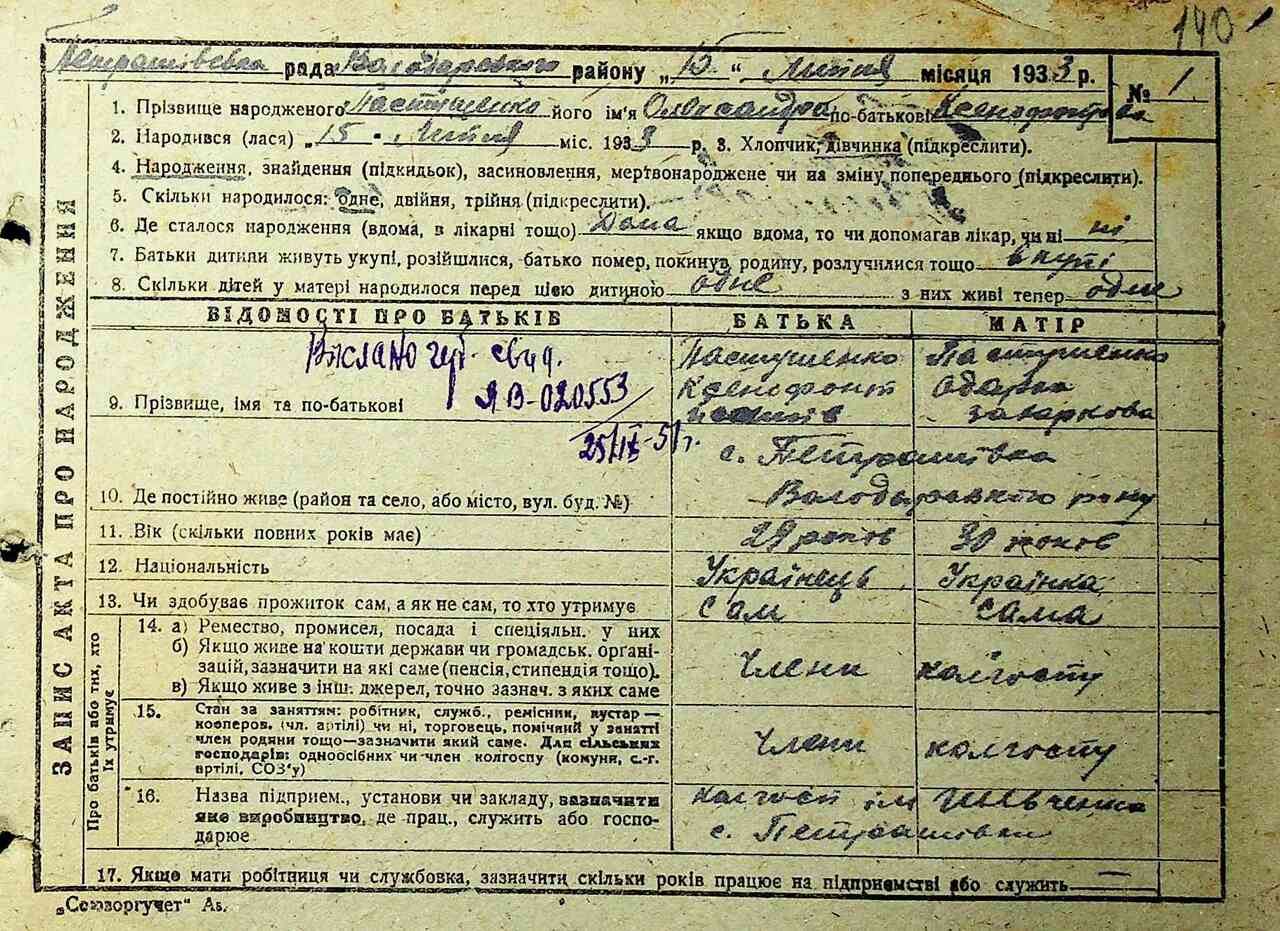 140
Петрашівська рада Володарського району „15“ Липня місяця 1933 р. № 1
1. Прізвище народженого Пастушенко його ім'я Олександра по-батькові Ксенофонтова
2. Народився (лася) „15 - Липня міс. 1933 р. 3. Хлопчик, дівчинка (підкреслити).
4. Народження, знайдення (підкидьок), засиновлення, мертвонароджене чи на зміну попереднього (підкреслити).
5. Скільки народилося: одне, двійня, трійня (підкреслити).
6. Де сталося народження (вдома, в лікарні тощо) Дома якщо вдома, то чи допомагав лікар, чи ні ні
7. Батьки дитини живуть укупі, розійшлися, батько помер, покинув родину, розлучилися тощо вкупі
8. Скільки дітей у матері народилося перед цією дитиною одне з них живі тепер одне
ВІДОМОСТІ ПРО БАТЬКІВ БАТЬКА МАТІР
Вислано свид.
ЯВ-020553
25/IX-51 г.
9. Прізвище, імя та по-батькові
Пастушенко Ксенофонт
Пастушенко Одарка Захаркова
10. Де постійно живе (район та село, або місто, вул. буд. №)
с. Петрашівка
Володарського району
11. Вік (скільки повних років має) 29 років 30 років
12. Національність Українець Українка
13. Чи здобуває прожиток сам, а як не сам, то хто утримує сам сама
14. а) Ремество, промисел, посада і спеціяльн. у них
б) Якщо живе на кошти держави чи громадськ. орґані-
зацій, зазначити на які саме (пенсія, стипендія тощо).
в) Якщо живе з інш. джерел, точно зазнач. з яких саме
Члени колгоспу
15. Стан за заняттям: робітник, служб., ремісник, кустар —
кооперов. (чл. артілі) чи ні, торговець, помічний у занятті
член родини тощо—зазначити який саме. Для сільських
господарів: одноосібних чи член колгоспу (комуни, с.-г.
артілі, СОЗ'у)
Члени колгоспу
16. Назва підприєм., установи чи закладу, зазначити
яке виробництво, де прац., служить або госпо-
дарює
колгосп ім Шевченка
с. Петрашівки
17. Якщо мати робітниця чи службовка, зазначити скільки років працює на підприємстві або служить —
ЗАПИС АКТА ПРО НАРОДЖЕННЯ
Про батьків або тих, хто
їх утримує
„Союзоргучет“ Ав.